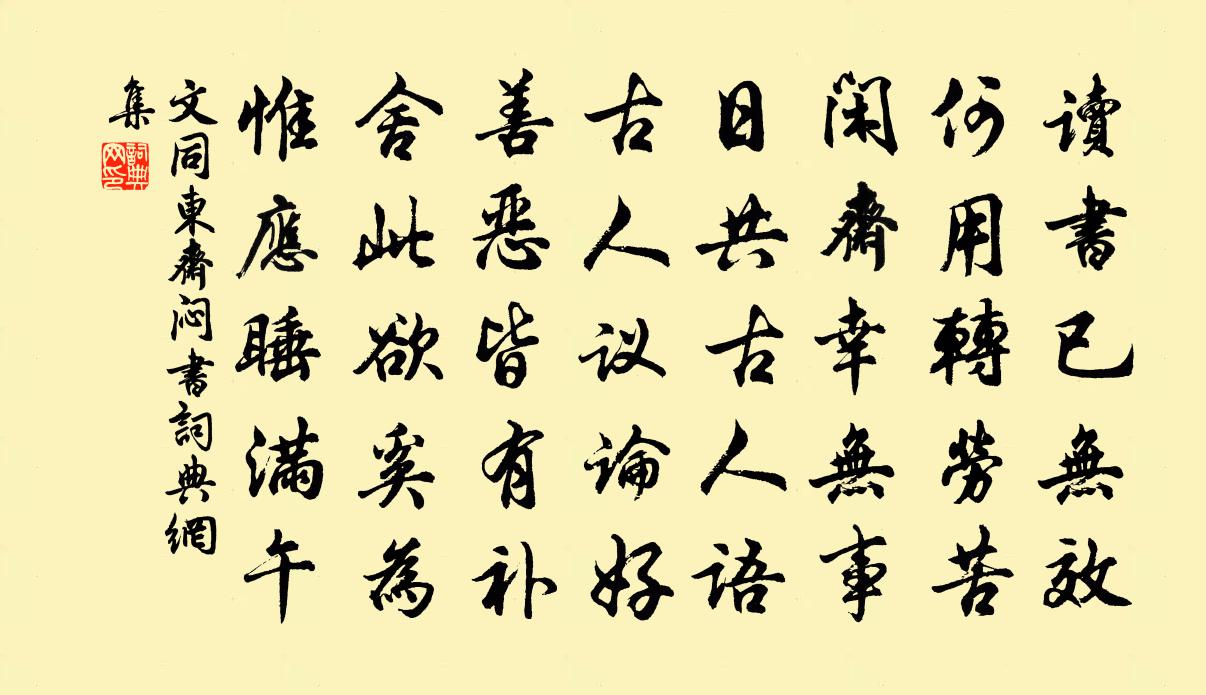 讀書已無效
何用轉勞苦
閑齋幸無事
日共古人語
古人议論好
善惡皆有补
舍此欲奚為
惟應睡滿午
文同東齋闷書詞典網
集
詞典
网印